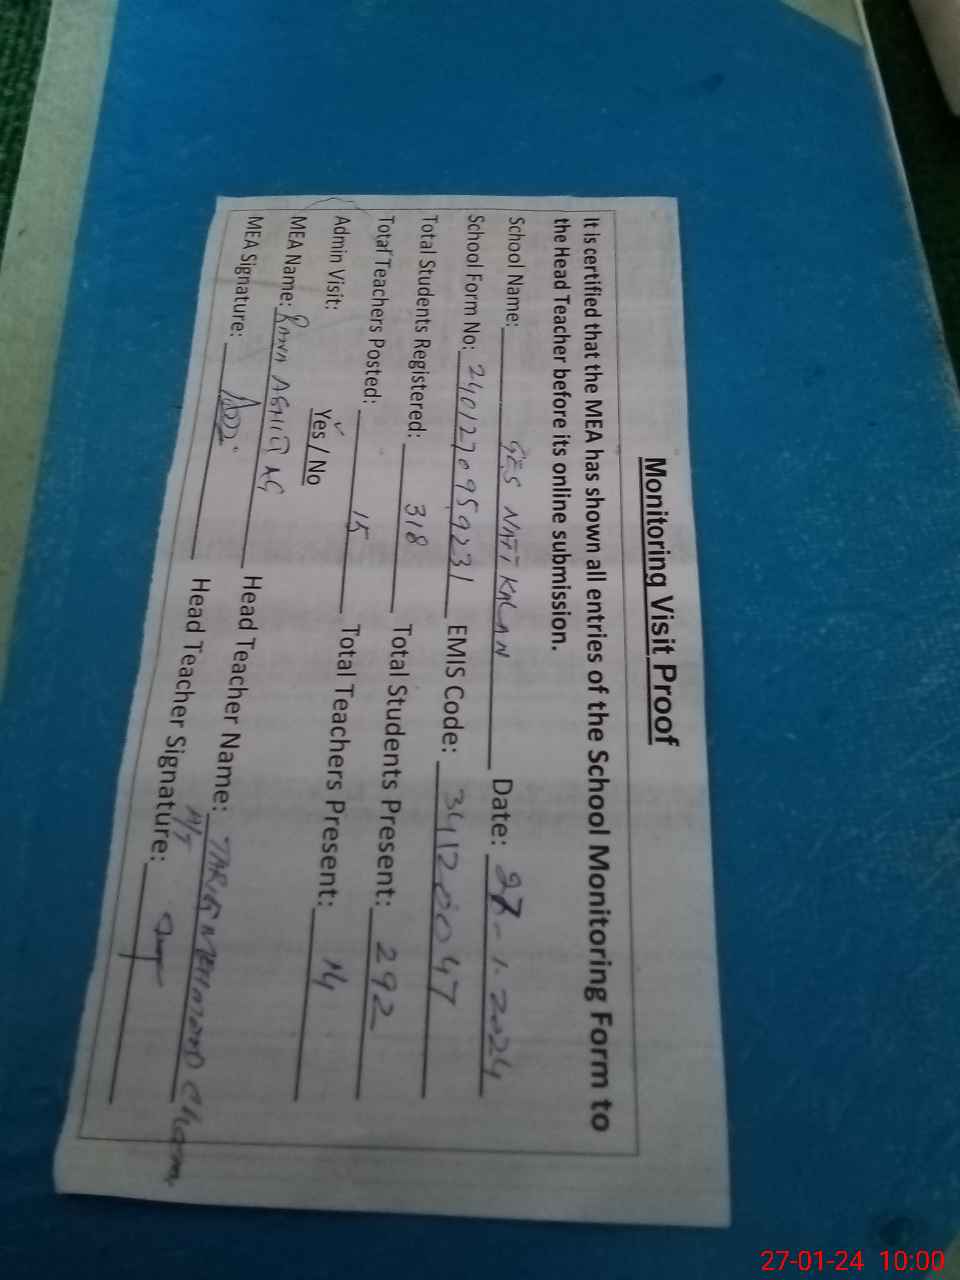 Monitoring Visit Proof
It is certified that the MEA has shown all entries of the School Monitoring Form to
the Head Teacher before its online submission.
School Name: GES NATT KALAN Date: 27-1-2024
School Form No: 240127095923 1 EMIS Code: 34120047
Total Students Registered: 318 Total Students Present: 292
Total Teachers Posted: 15 Total Teachers Present: 14
Admin Visit: Yes / No
MEA Name: RANA ASHIQ Head Teacher Name: TARIQ MEHMOOD
MEA Signature: Head Teacher Signature:
27-01-24 10:00